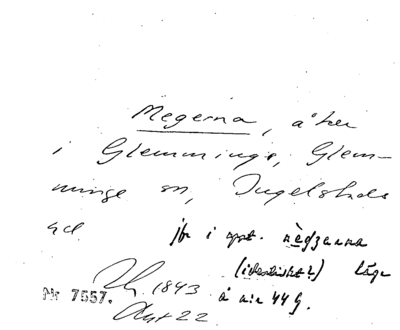 Megerna, åker
i Glemminge, Glem-
minge sn, Ingelstads
hd. jfr i uppt. nèdgarna
(identiskt?) läge
1843 å nin 44 G.
Nr 7557.
Akt 22